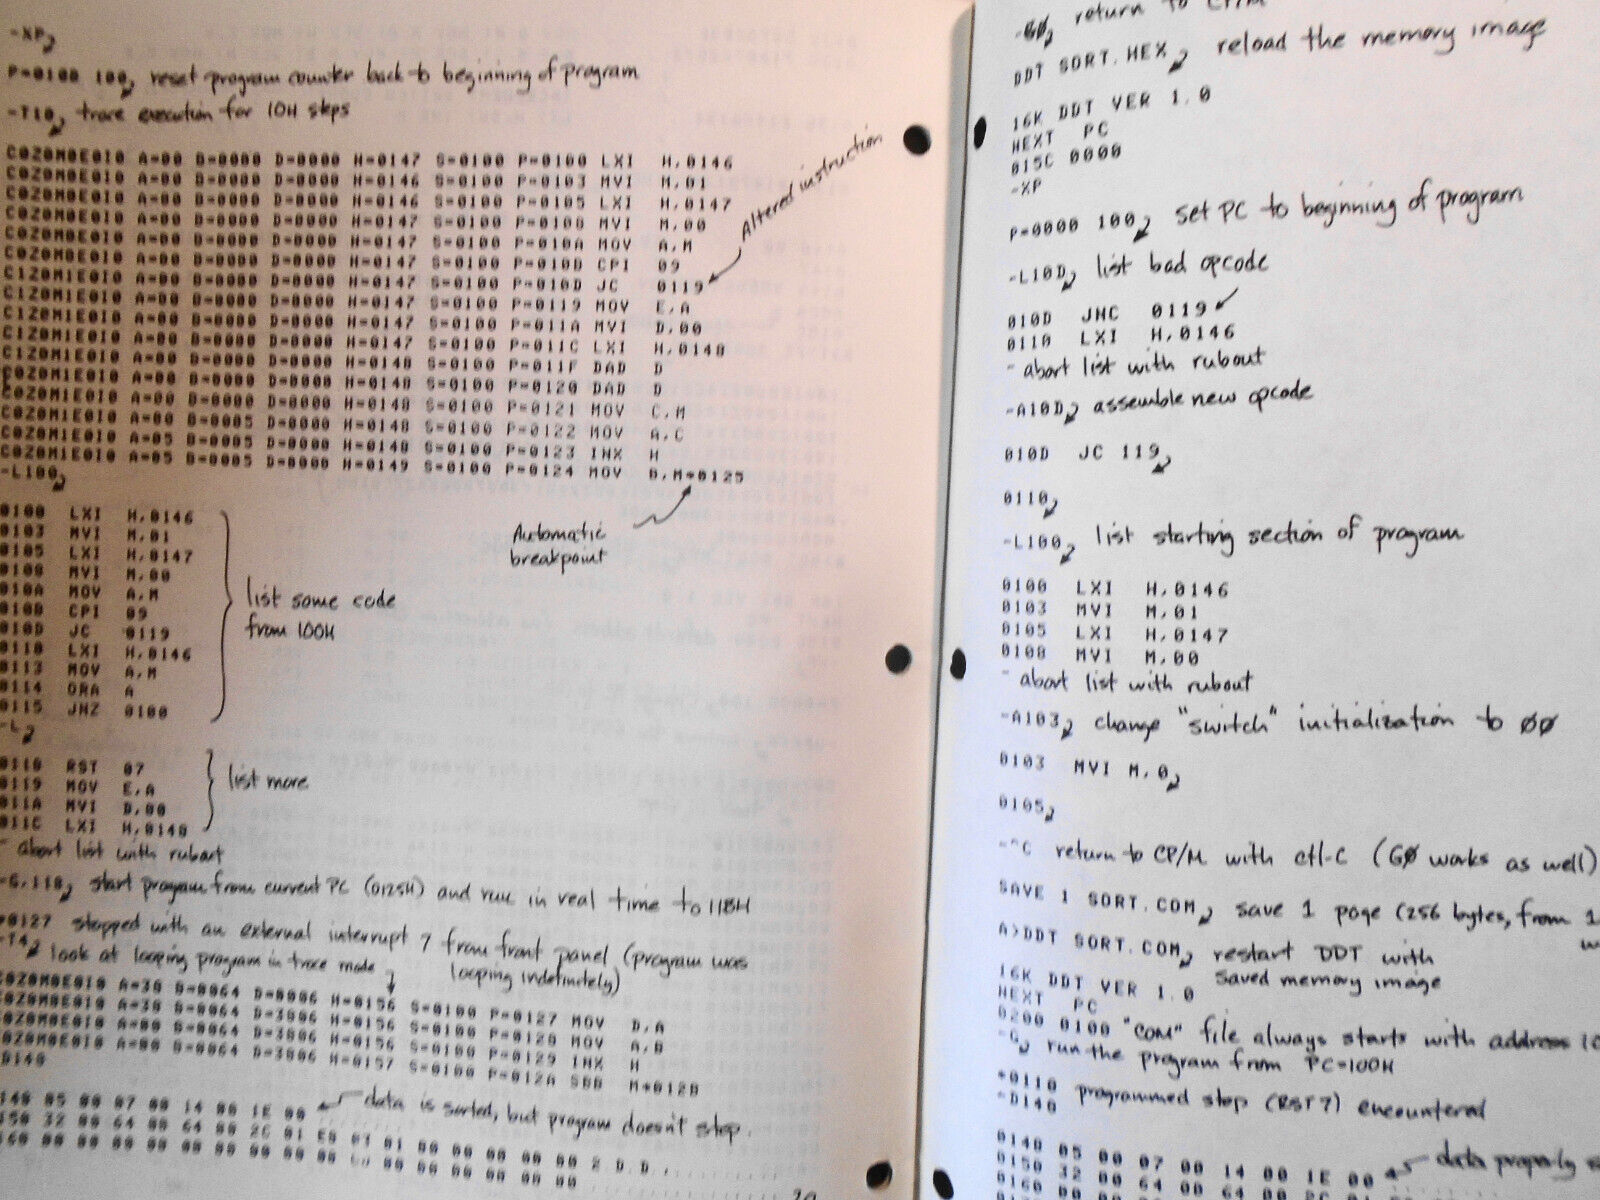 -XP
P=0100 100 reset program counter back to beginning of program
-T10 trace execution for 10H steps
C0Z0M0E0I0 A=00 B=0000 D=0000 H=0147 S=0100 P=0100 LXI H,0146
C0Z0M0E0I0 A=00 B=0000 D=0000 H=0146 S=0100 P=0103 MVI M,01
C0Z0M0E0I0 A=00 B=0000 D=0000 H=0146 S=0100 P=0105 LXI H,0147
C0Z0M0E0I0 A=00 B=0000 D=0000 H=0147 S=0100 P=0108 MVI M,00
C0Z0M0E0I0 A=00 B=0000 D=0000 H=0147 S=0100 P=010A MOV A,M
C0Z0M0E0I0 A=00 B=0000 D=0000 H=0147 S=0100 P=010B CPI 09
C1Z0M1E0I0 A=00 B=0000 D=0000 H=0147 S=0100 P=010D JC 0119
Altered instruction
C1Z0M1E0I0 A=00 B=0000 D=0000 H=0147 S=0100 P=0119 MOV E,A
C1Z0M1E0I0 A=00 B=0000 D=0000 H=0147 S=0100 P=011A MVI D,00
C1Z0M1E0I0 A=00 B=0000 D=0000 H=0147 S=0100 P=011C LXI H,0148
C1Z0M1E0I0 A=00 B=0000 D=0000 H=0148 S=0100 P=011F DAD D
C0Z0M1E0I0 A=00 B=0000 D=0000 H=0148 S=0100 P=0120 DAD D
C0Z0M1E0I0 A=00 B=0000 D=0000 H=0148 S=0100 P=0121 MOV C,M
C0Z0M1E0I0 A=00 B=0005 D=0000 H=0148 S=0100 P=0122 MOV A,C
C0Z0M1E0I0 A=05 B=0005 D=0000 H=0148 S=0100 P=0123 INX H
C0Z0M1E0I0 A=05 B=0005 D=0000 H=0149 S=0100 P=0124 MOV B,M*0125
Automatic
breakpoint
-L100
0100 LXI H,0146
0103 MVI M,01
0105 LXI H,0147
0108 MVI M,00
010A MOV A,M
010B CPI 09
010D JC 0119
0110 LXI H,0146
0113 MOV A,M
0114 ORA A
0115 JNZ 0100
list some code
from 100H
-L
0118 RST 07
0119 MOV E,A
011A MVI D,00
011C LXI H,0148
list more
- abort list with rubout
-G,118 start program from current PC (0125H) and run in real time to 118H
*0127 stopped with an external interrupt 7 from front panel (program was
looping indefinitely)
-T4 look at looping program in trace mode
C0Z0M0E0I0 A=38 B=0064 D=0006 H=0156 S=0100 P=0127 MOV D,A
C0Z0M0E0I0 A=38 B=0064 D=3806 H=0156 S=0100 P=0128 MOV A,B
C0Z0M0E0I0 A=00 B=0064 D=3806 H=0156 S=0100 P=0129 INX H
C0Z0M0E0I0 A=00 B=0064 D=3806 H=0157 S=0100 P=012A SBB M*012B
D148
148 05 00 07 00 14 00 1E 00
data is sorted, but program doesn't stop.
150 32 00 64 00 64 00 2C 01 E8 03 01 80 00 00 00 00 2 D.D.,
160 00 00 00 00 00 00 00 00 00 00 00 00 00 00 00 00
-G0 return to CP/M
DDT SORT.HEX reload the memory image
16K DDT VER 1.0
NEXT PC
015C 0000
-XP
P=0000 100 set PC to beginning of program
-L10D list bad opcode
010D JNC 0119
0110 LXI H,0146
- abort list with rubout
-A10D assemble new opcode
010D JC 119
0110
-L100 list starting section of program
0100 LXI H,0146
0103 MVI M,01
0105 LXI H,0147
0108 MVI M,00
- abort list with rubout
-A103 change "switch" initialization to 00
0103 MVI M,0
0105
-^C return to CP/M with ctl-C (G0 works as well)
SAVE 1 SORT.COM save 1 page (256 bytes, from 1
A>DDT SORT.COM restart DDT with
saved memory image
16K DDT VER 1.0
NEXT PC
0200 0100 "COM" file always starts with address 10
-G run the program from PC=100H
*0118 programmed stop (RST 7) encountered
-D148
0148 05 00 07 00 14 00 1E 00
data properly
0150 32 00 64 00 64 00 2C 01
0160 00 00 00 00 00 00 00